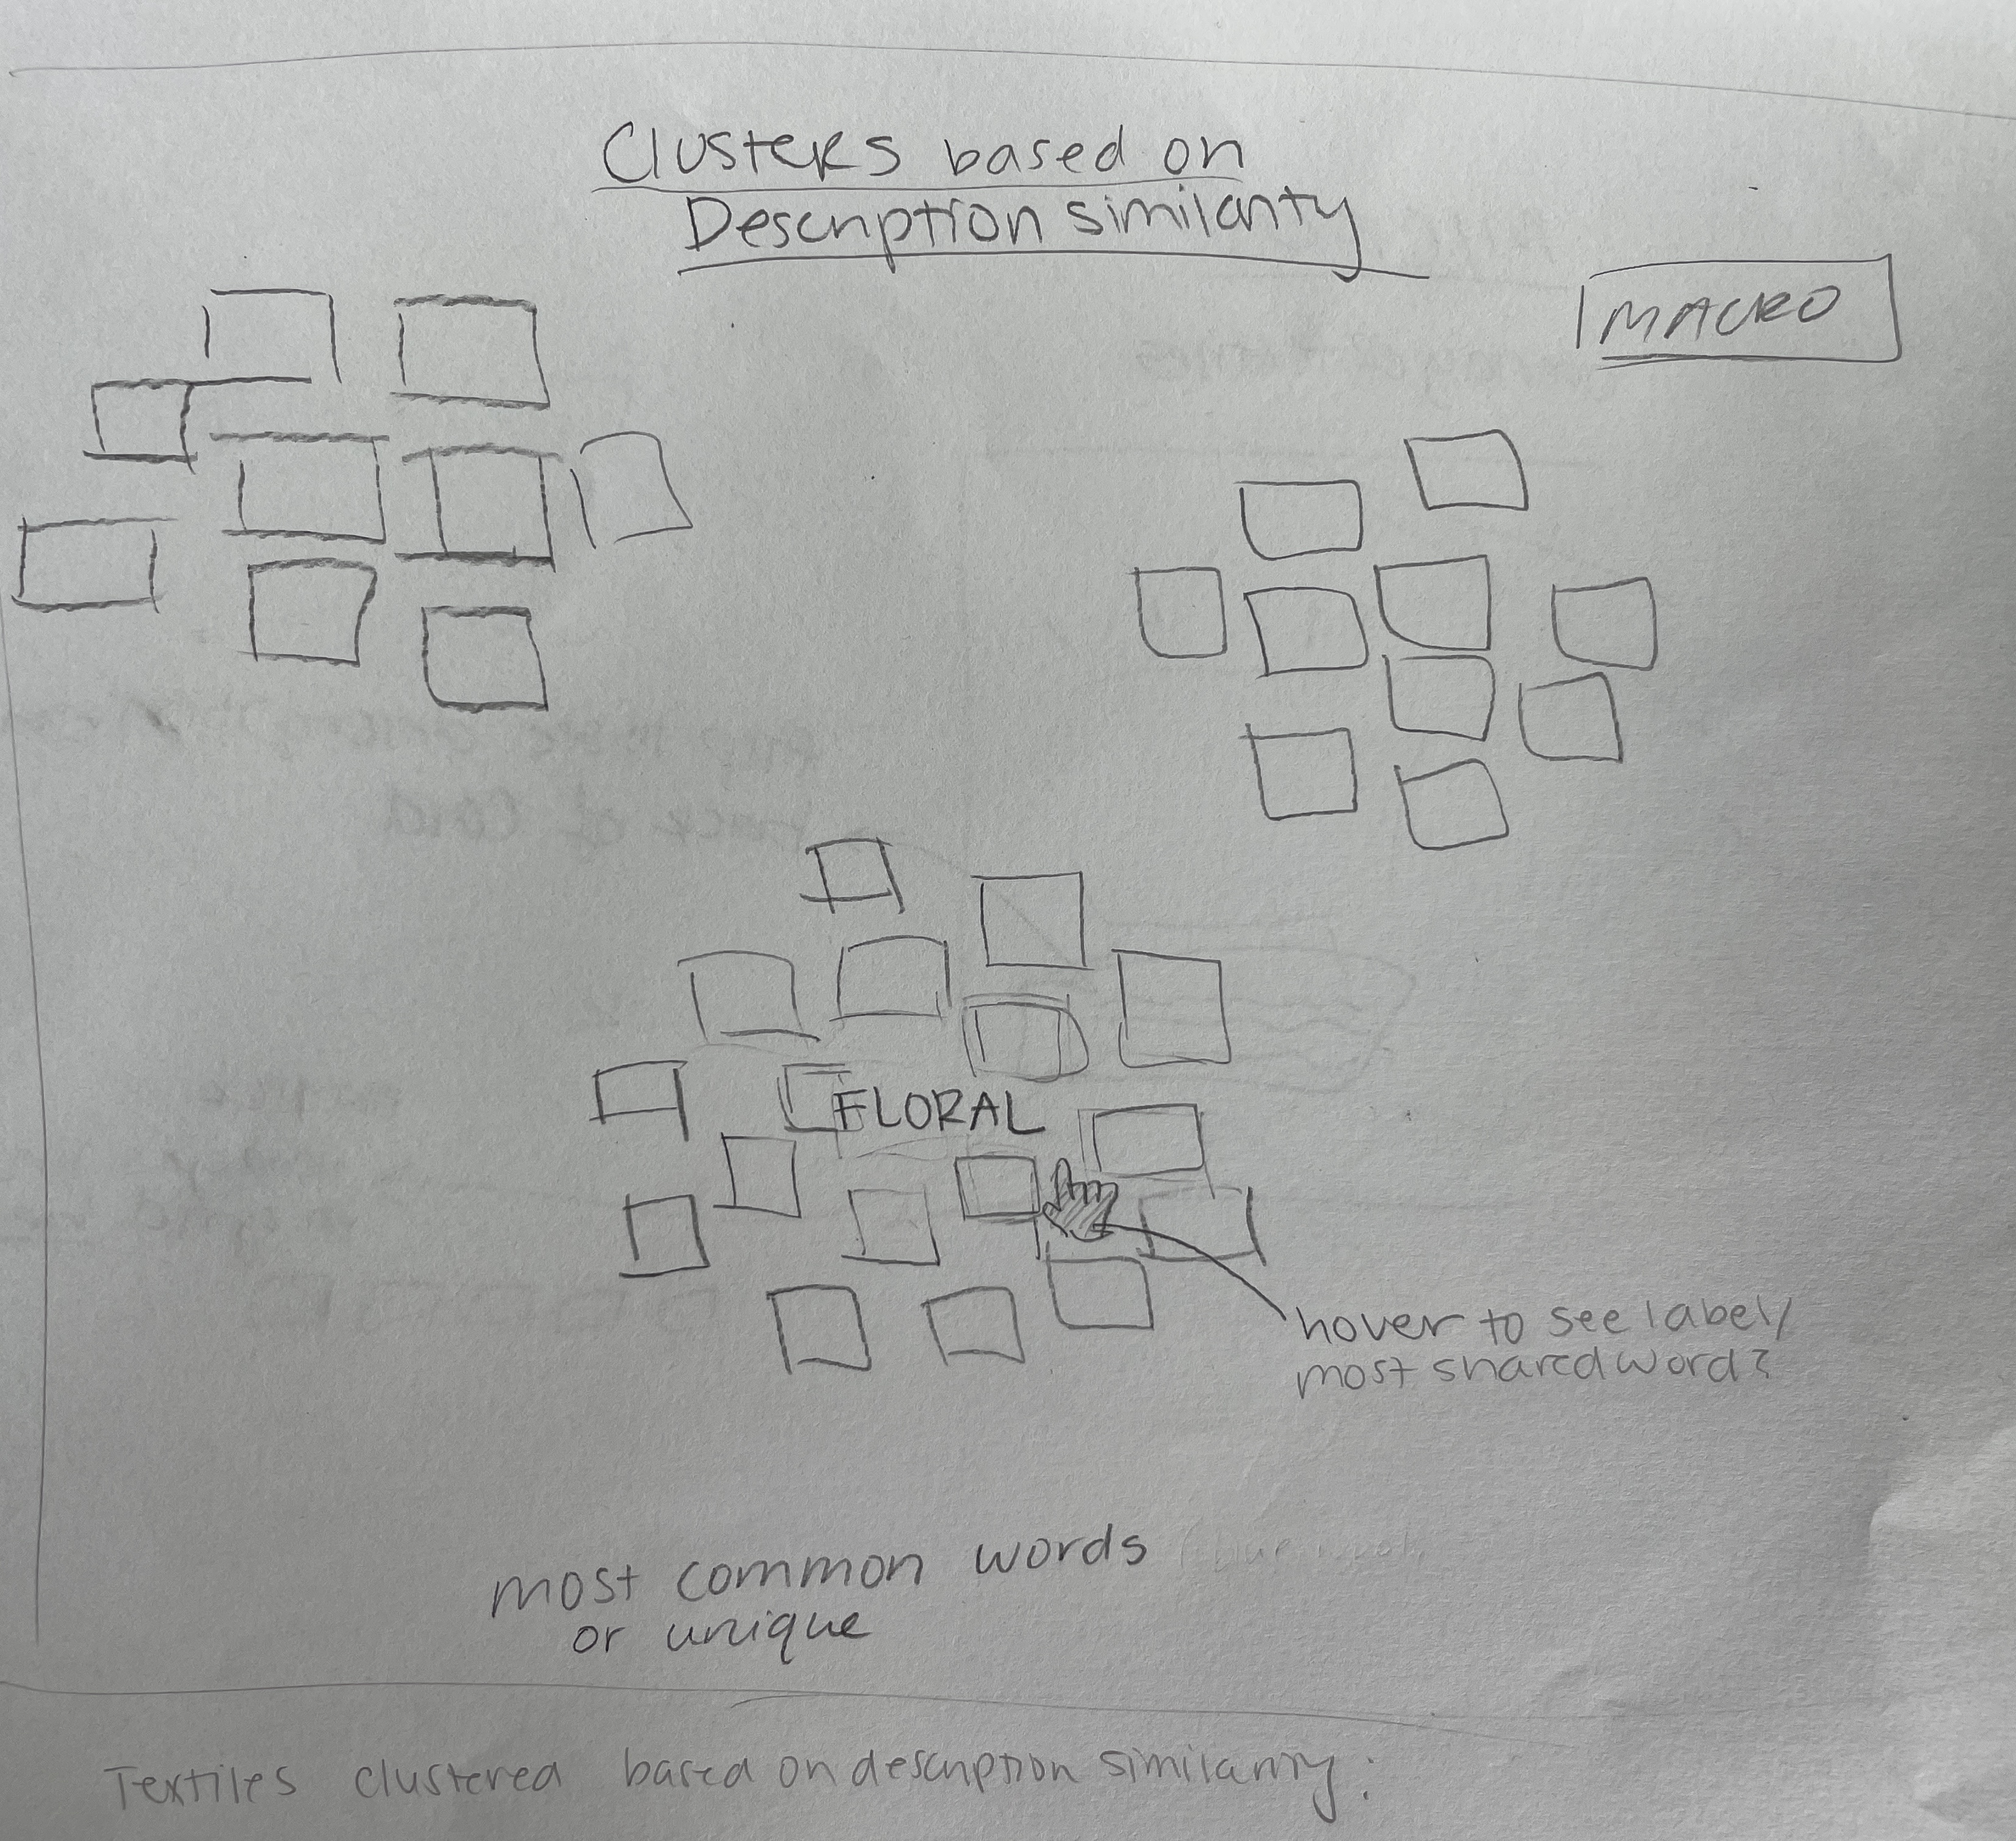 Clusters based on
Description similarity
MACRO
FLORAL
hover to see label/
most shared word?
most common words
or unique
Textiles clustered based on description similarity: